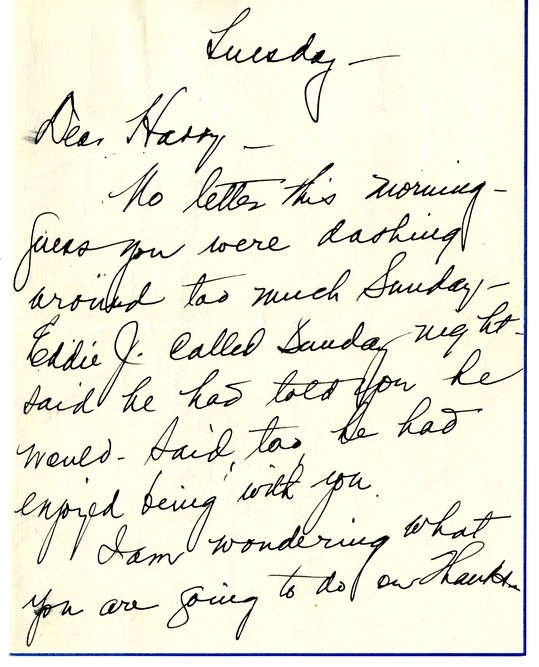 Tuesday —
Dear Harry —
No letter this morning -
guess you were dashing
around too much Sunday -
Eddie J. called Sunday night -
said he had told you he
would - Said, too, he had
enjoyed being with you.
I am wondering what
you are going to do on Thanks-